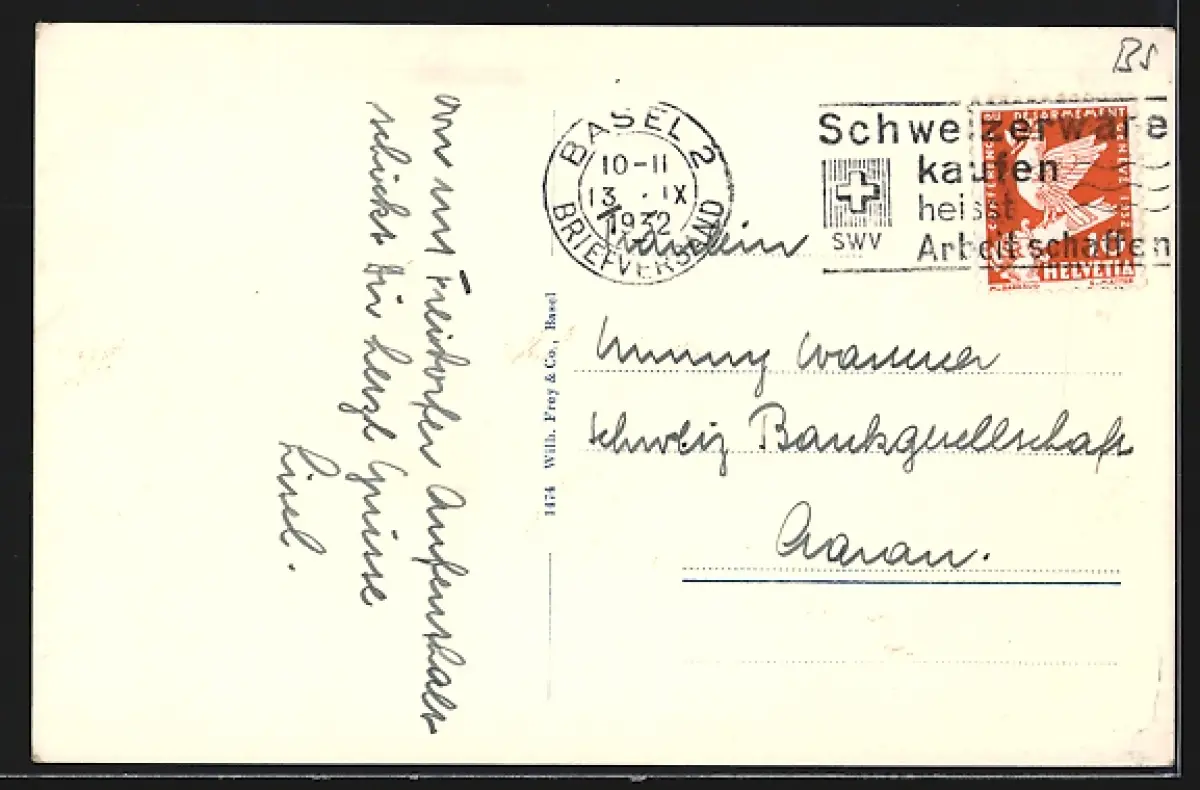 BS
BASEL 2
10-11
13. IX
1932
BRIEFVERSAND
Schweizerware
kaufen
heisst
Arbeit schaffen
SWV
HELVETIA
Fräulein
Wanner
Schweiz Bankgesellschaft
Aarau.
1474 Wilh. Frey & Co., Basel
Von uns Freidorfer Aufenthalt
schickt dir herzl Grüsse
Lisel.